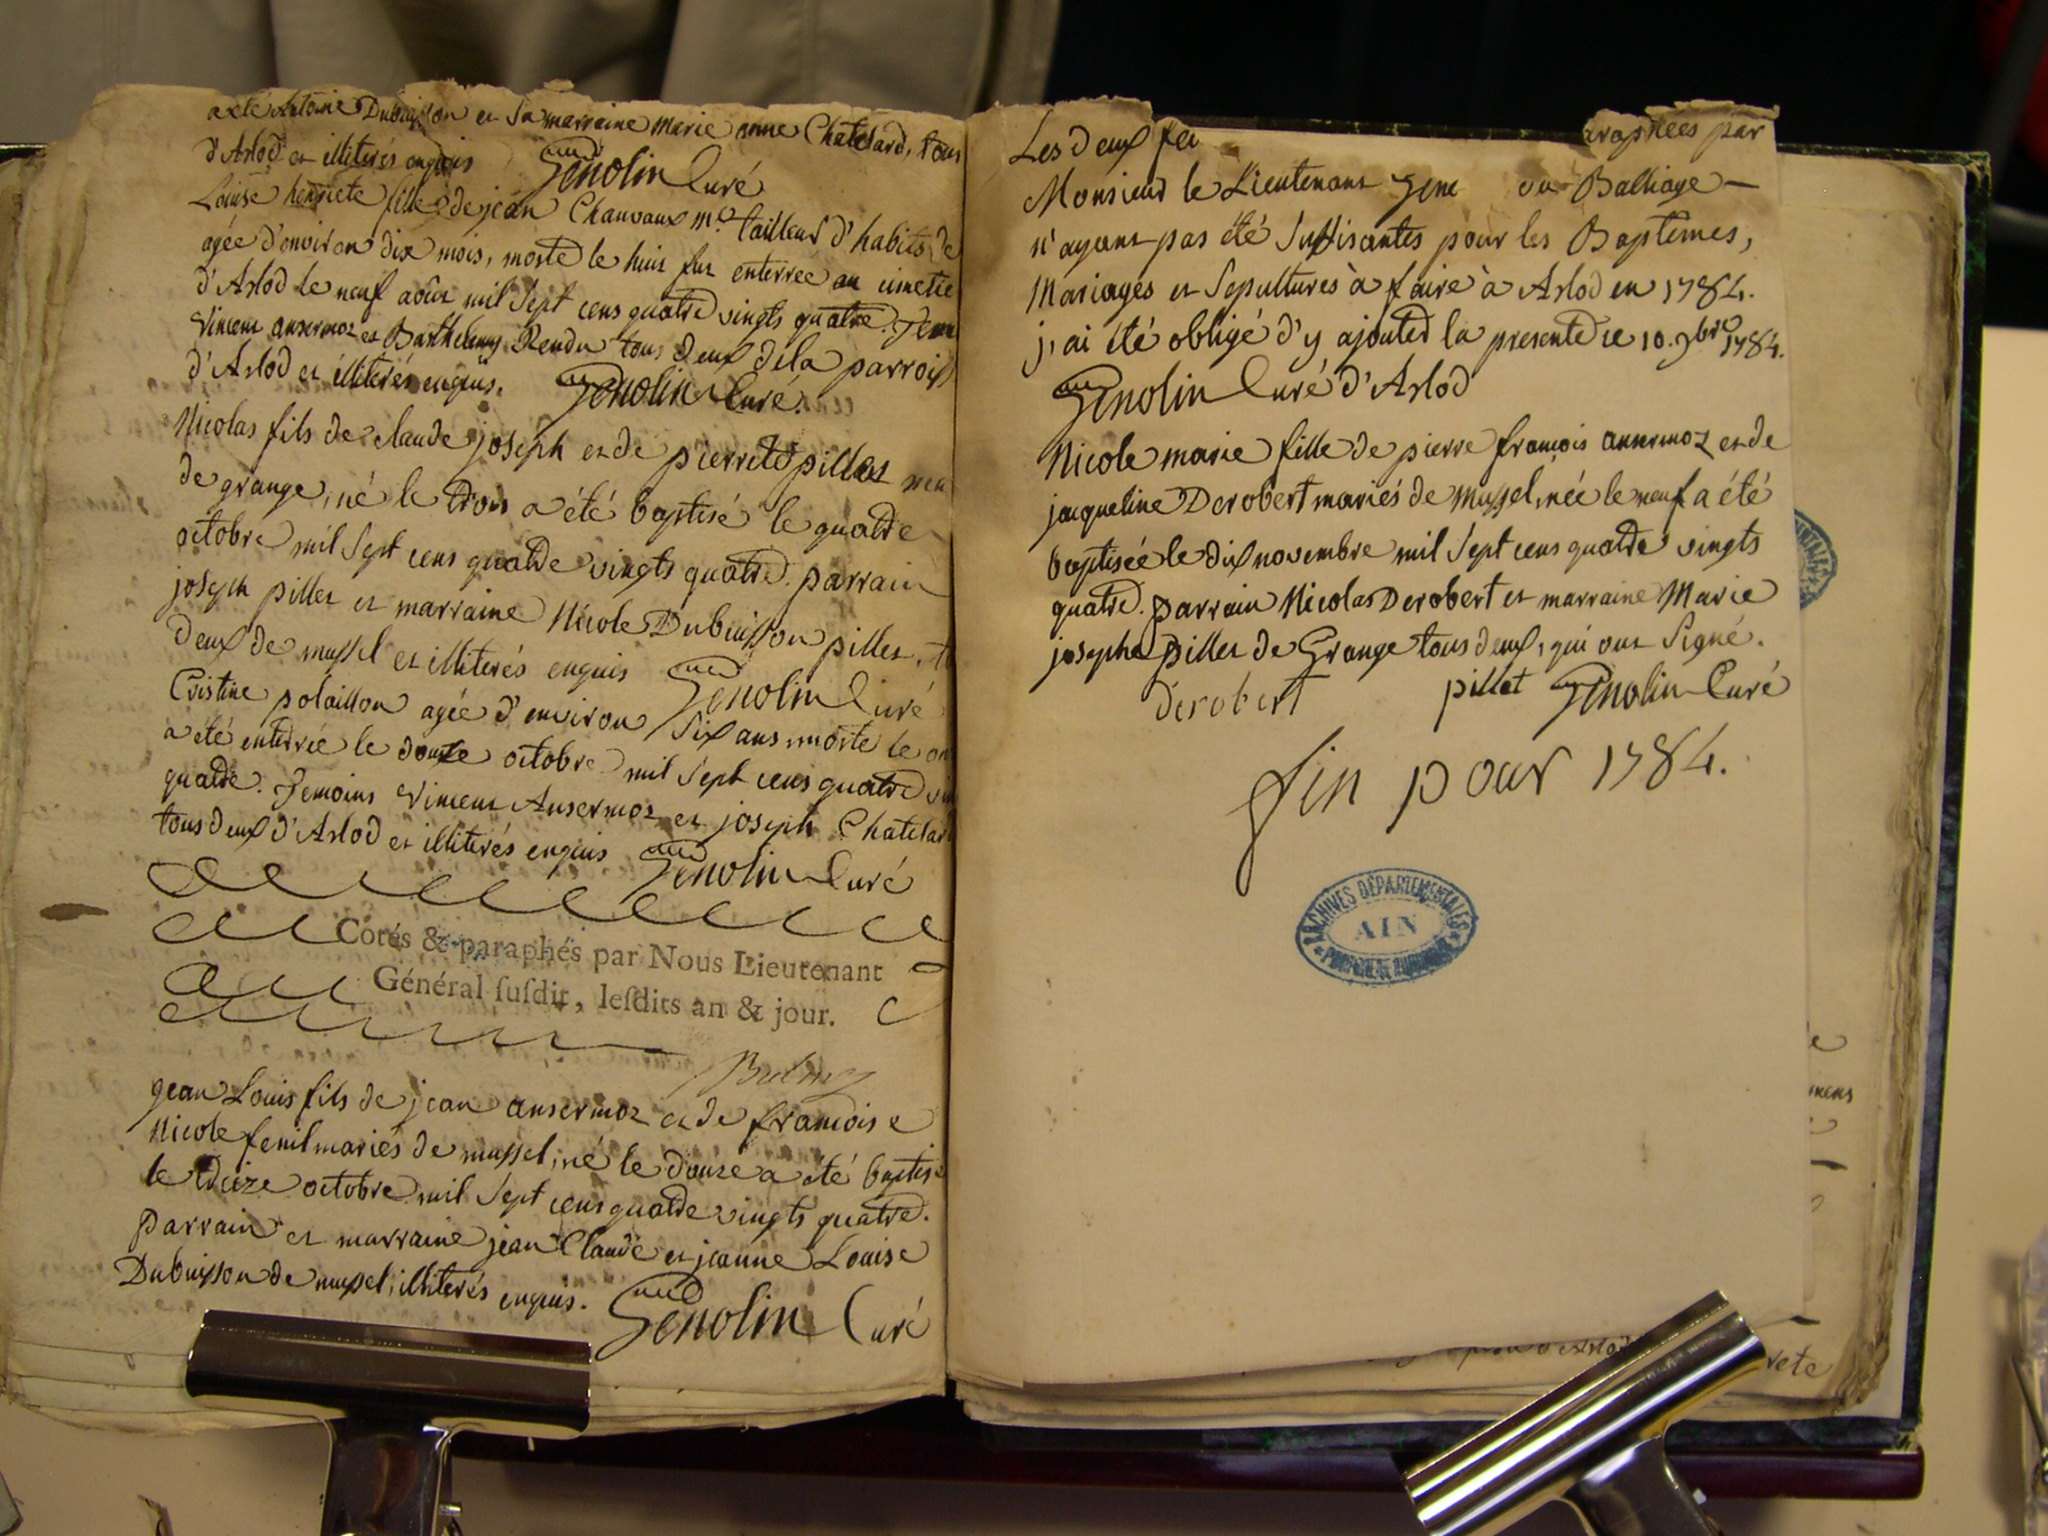 a été Antoine Dubuisson et sa marraine Marie anne Chatelard, tous
d'Arlod et illiterés enquis Genolin Curé
Louise henriete fille de jean Chauvaux me. tailleur d'habits de
agée d'environ dix mois, morte le huit fut enterrée au cimetie
d'Arlod le neuf août mil sept cens quatre vingts quatre. Temo
Vincent ansermoz et Barthelemy Rendu tous deux dela parroiss
d'Arlod et illiterés enquis. Genolin Curé.
Nicolas fils de claude joseph et de pierrete pillet mar
de grange, né le trois a été baptisé le quatre
octobre mil sept cens quatre vingts quatre. parrain
joseph pillet et marraine Nicole Dubuisson pillet, t
deux de mussel et illiterés enquis Genolin Curé
Cristine polaillon agée d'environ six ans morte le on
a été enterrée le douze octobre mil sept cens quatre vin
quatre. Temoins Vincent Ansermoz et joseph Chatelar
tous deux d'Arlod et illiterés enquis Genolin Curé
Cotés & paraphés par Nous Lieutenant
Général susdit, lesdits an & jour.
jean Louis fils de jean ansermoz et de francoise
Nicole fenil mariés de mussel, né le douze a été baptisé
le treize octobre mil sept cens quatre vingts quatre.
Parrain et marraine jean Claude et jeanne Louise
Dubuisson de mussel, illiterés enquis. Genolin Curé
Les deux feu araphées par
Monsieur le Lieutenant gene au Balliage —
n'ayant pas été suffisantes pour les Baptêmes,
Mariages et Sepultures à faire à Arlod en 1784.
j'ai été obligé d'y ajouter la presente ce 10. 9bre 1784.
Genolin Curé d'Arlod
Nicole marie fille de pierre françois ansermoz et de
jacqueline Derobert mariés de mussel, née le neuf a été
baptisée le dix novembre mil sept cens quatre vingts
quatre. parrain Nicolas Derobert et marraine Marie
josephe pillet de Grange tous deux, qui ont signé.
derobert pillet Genolin Curé
fin pour 1784.
ARCHIVES DÉPARTEMENTALES
AIN